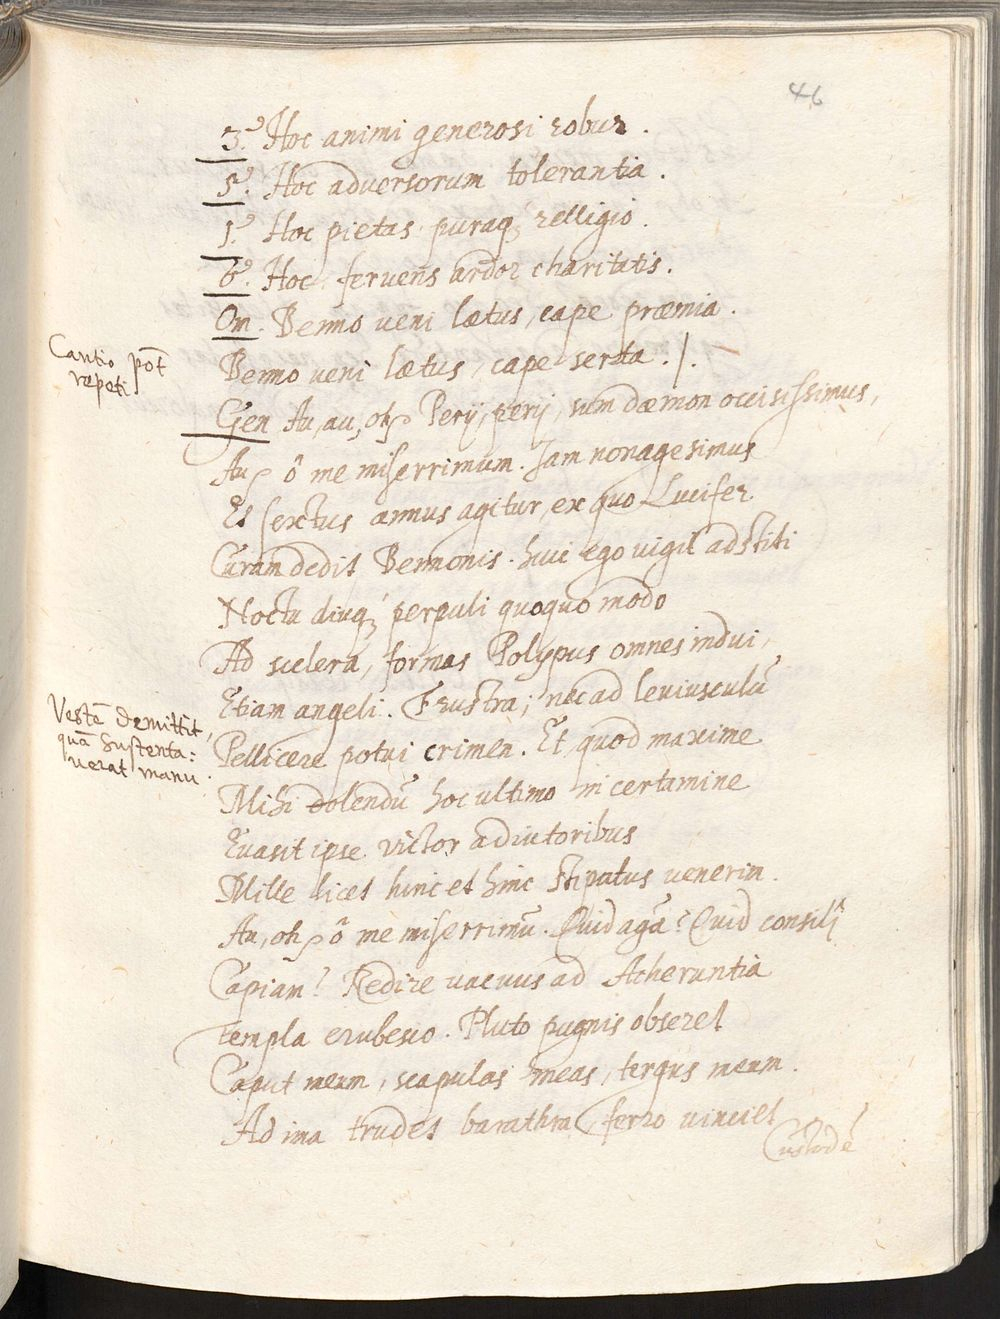 46
3.º Hoc animi generosi robur.
5.º Hoc adversorum tolerantia.
1.º Hoc pietas puraq₃ relligio.
6.º Hoc fervens ardor charitatis.
Om. Benno veni lætus, cape præmia.
Cantio põt
repeti
Benno veni lætus, cape serta.
Gen Au, au, oh, Perij, perij, sum dæmon occisissimus,
Au, ô me miserrimum. Jam nonagesimus
Et sextus annus agitur, ex quo Lucifer
Curam dedit Bennonis. huic ego vigil adstiti
Noctu diuq₃, perpuli quoquo modo
Ad scelera, formas Polypus omnes indui,
Etiam angeli. Frustra; nec ad leviusculũ
Vestẽ demittit,
quã sustenta:
verat manu.
Pellicere potui crimen. Et quod maxime
Mihi dolendũ hoc ultimo in certamine
Evasit ipse victor adiutoribus
Mille licet hinc et hinc stipatus venerim.
Au, oh, ô me miserrimũ. Quid agã? Quid consilij
Capiam? Redire vacuus ad Acheruntia
Templa erubesco. Pluto pugnis obseret
Caput meum, scapulas meas, tergus meum.
Ad ima trudet barathra, ferro vinciet
Custodẽ